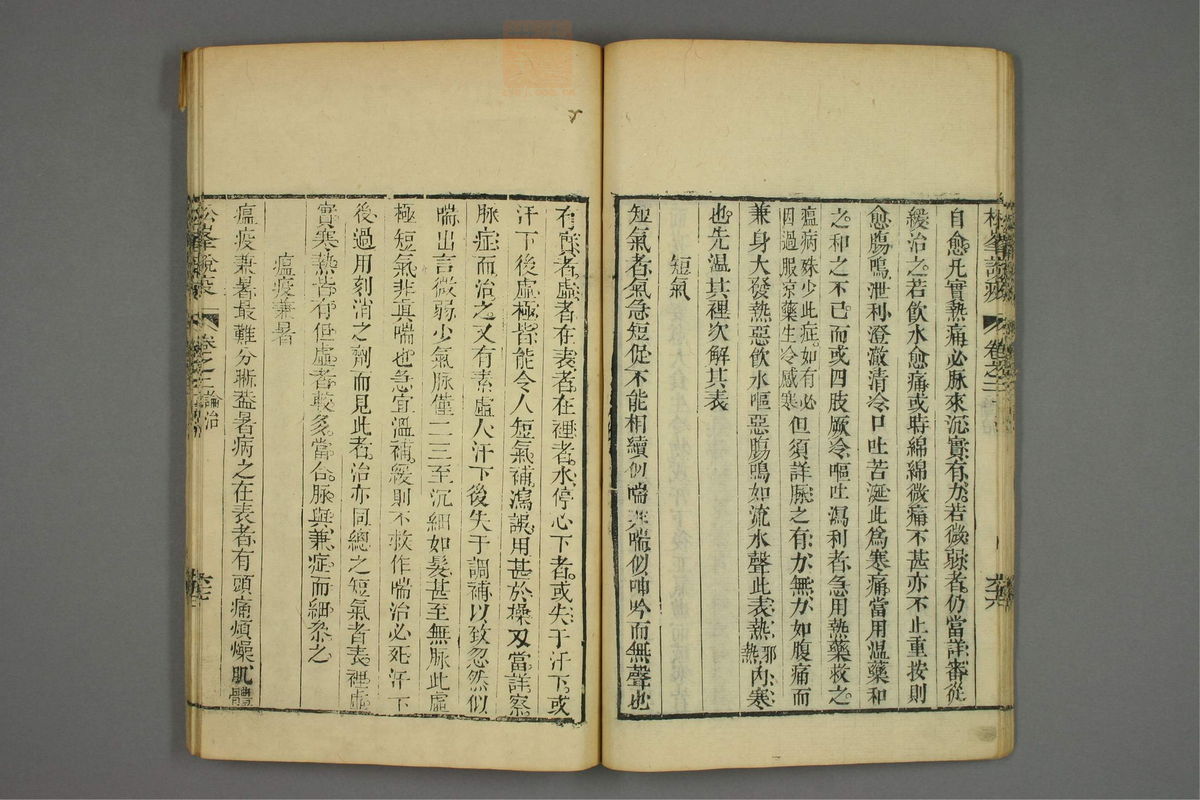 松峯說疫 卷之二 六十六
自愈凡實熱痛必脉來沉實有力若微弱者仍當詳審從
緩治之若飲水愈痛或時綿綿微痛不甚亦不止重按則
愈腸鳴泄利澄澈清冷口吐苦涎此爲寒痛當用温藥和
之和之不已而或四肢厥冷嘔吐瀉利者急用熱藥救之
瘟病殊少此症如有必
因過服凉藥生冷感寒
但須詳脉之有力無力如腹痛而
兼身大發熱惡飲水嘔惡腸鳴如流水聲此表熱邪熱内寒
也先温其裡次解其表
短氣
短氣者氣急短促不能相續似喘非喘似呻吟而無聲也
有實者虛者在表者在裡者水停心下者或失于汗下或
汗下後虛極皆能令人短氣補瀉誤用甚於操刄當詳察
脉症而治之又有素虛人汗下後失于調補以致忽然似
喘出言微弱少氣脉僅二三至沉細如髮甚至無脉此虛
極短氣非眞喘也急宜温補緩則不救作喘治必死汗下
後過用刻消之劑而見此者治亦同總之短氣者表裡虛
實寒熱皆有但虛者較多當合脉與兼症而細察之
瘟疫兼暑
瘟疫兼暑最難分晣蓋暑病之在表者有頭痛煩燥肌體
松峯說疫 卷之二 論治 六十七